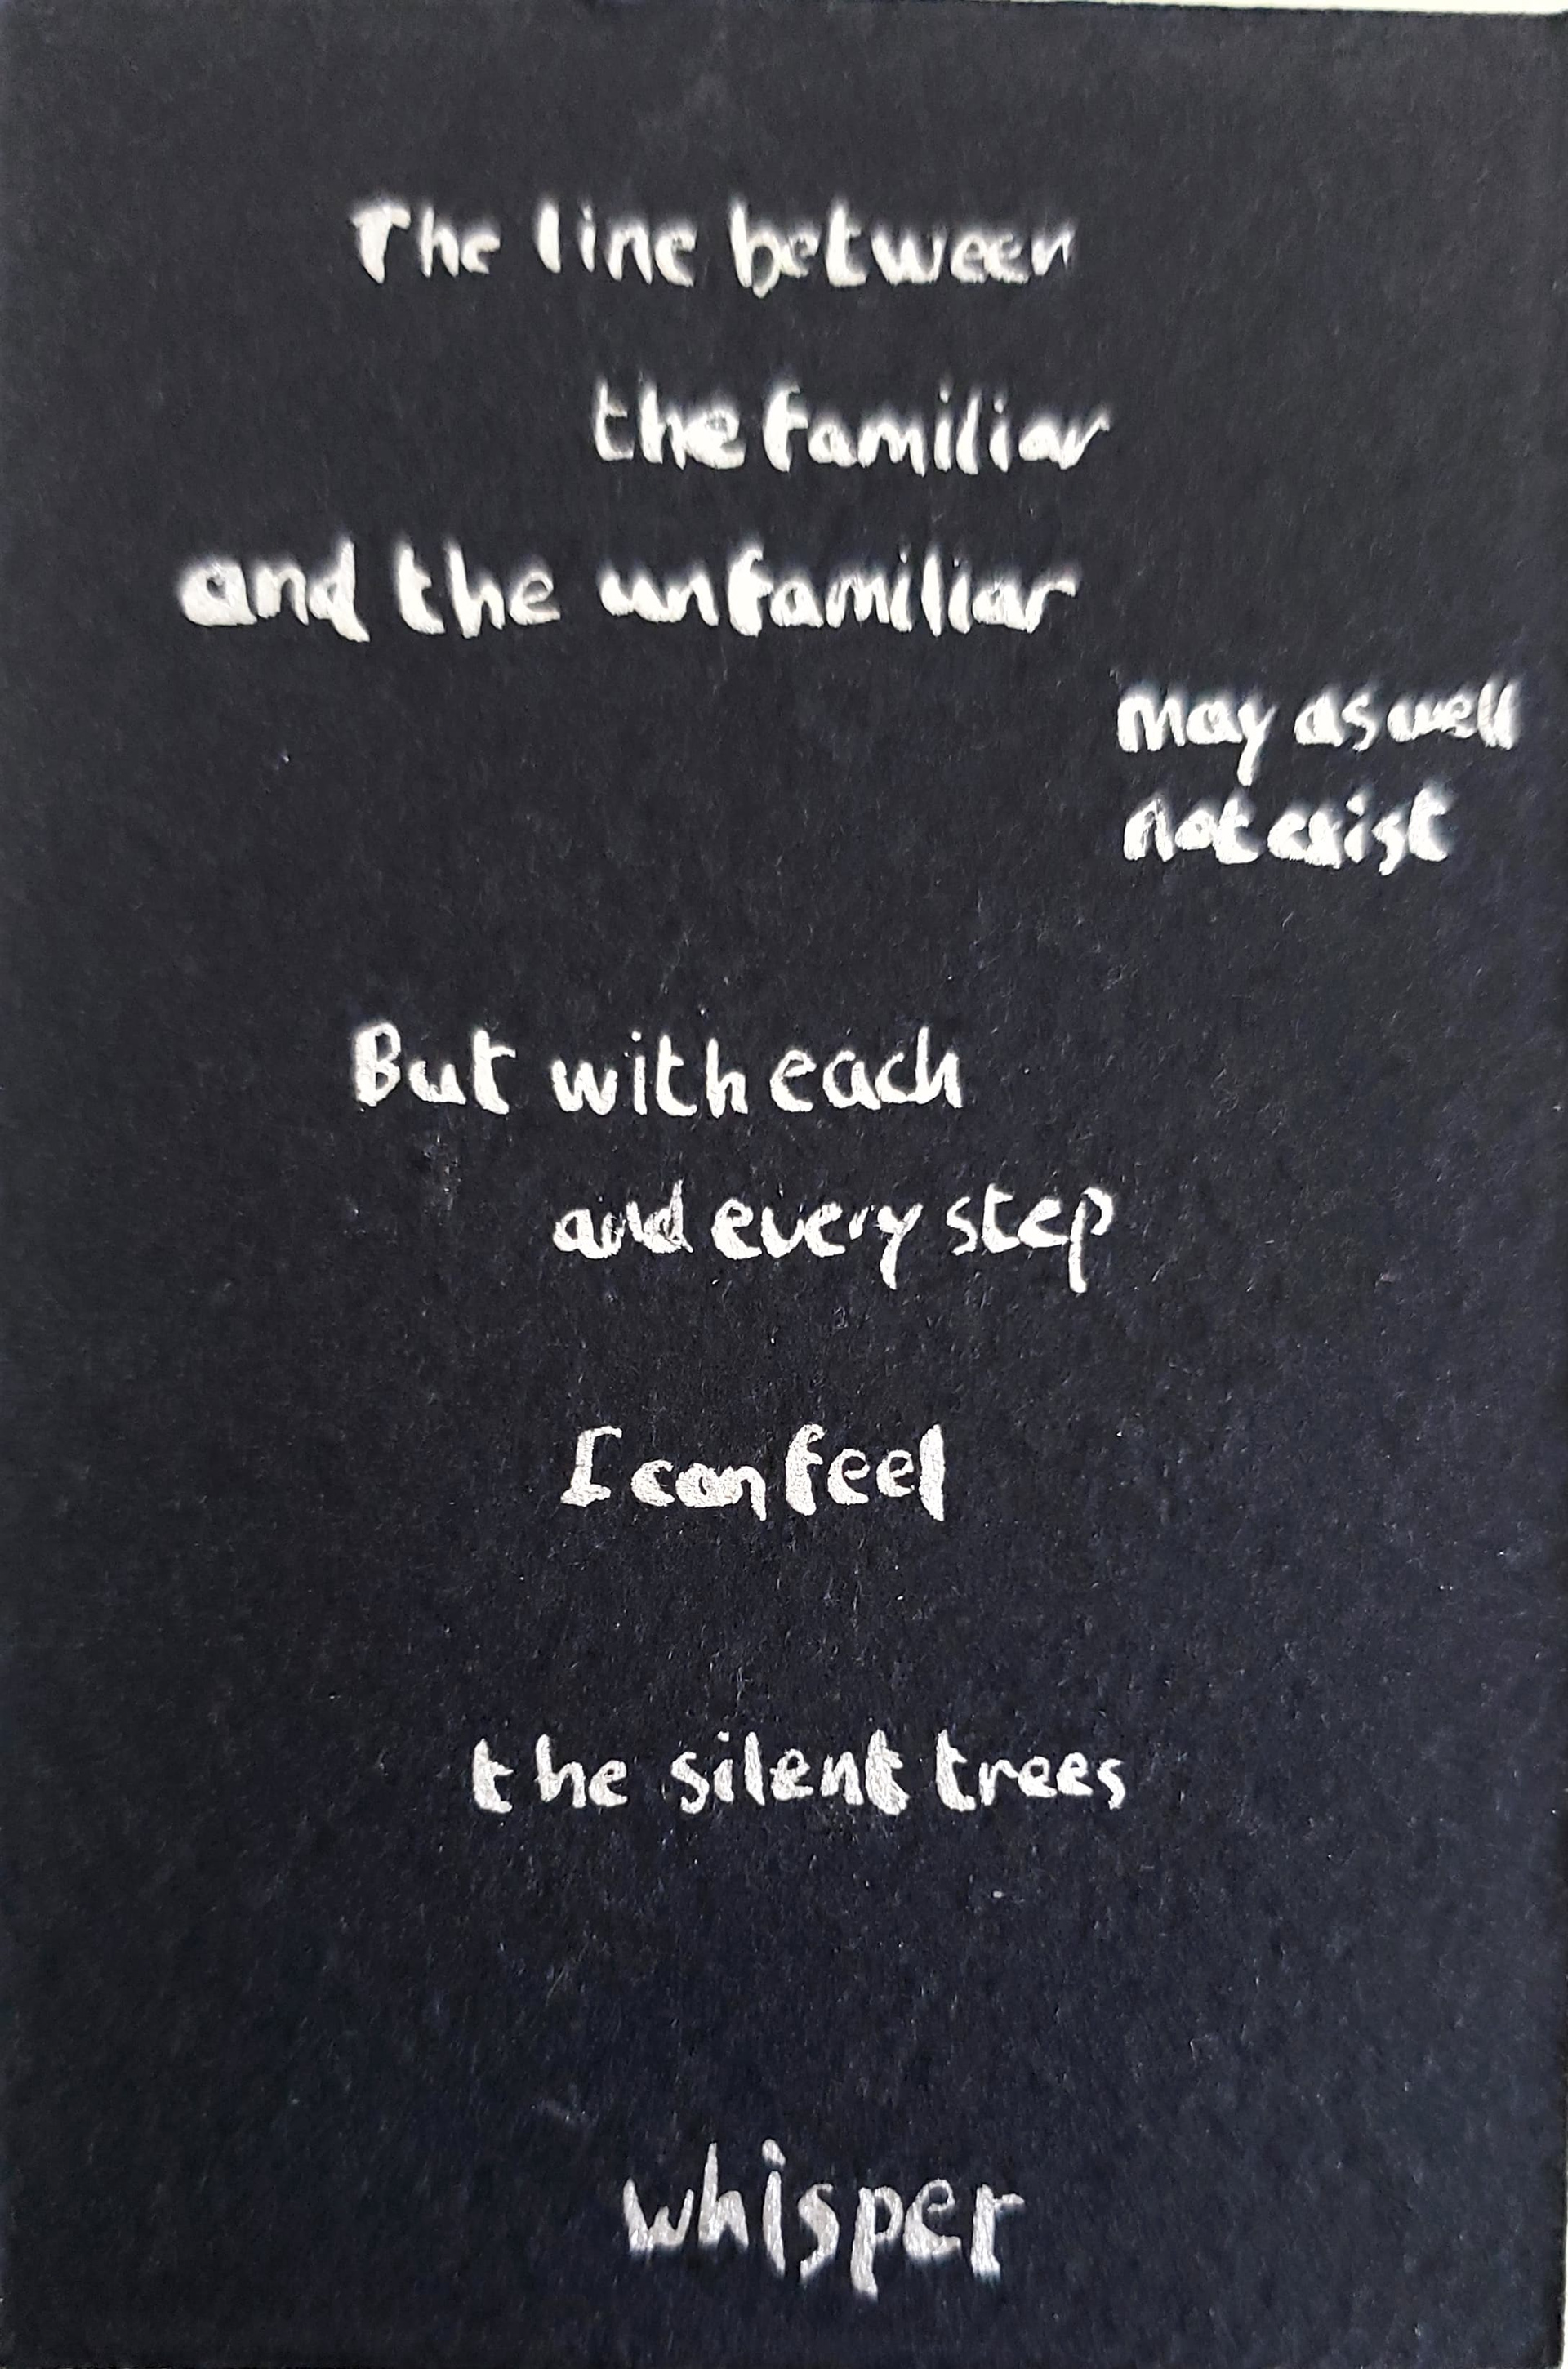 The line between
the familiar
and the unfamiliar
may as well
not exist
But with each
and every step
I can feel
the silent trees
whisper